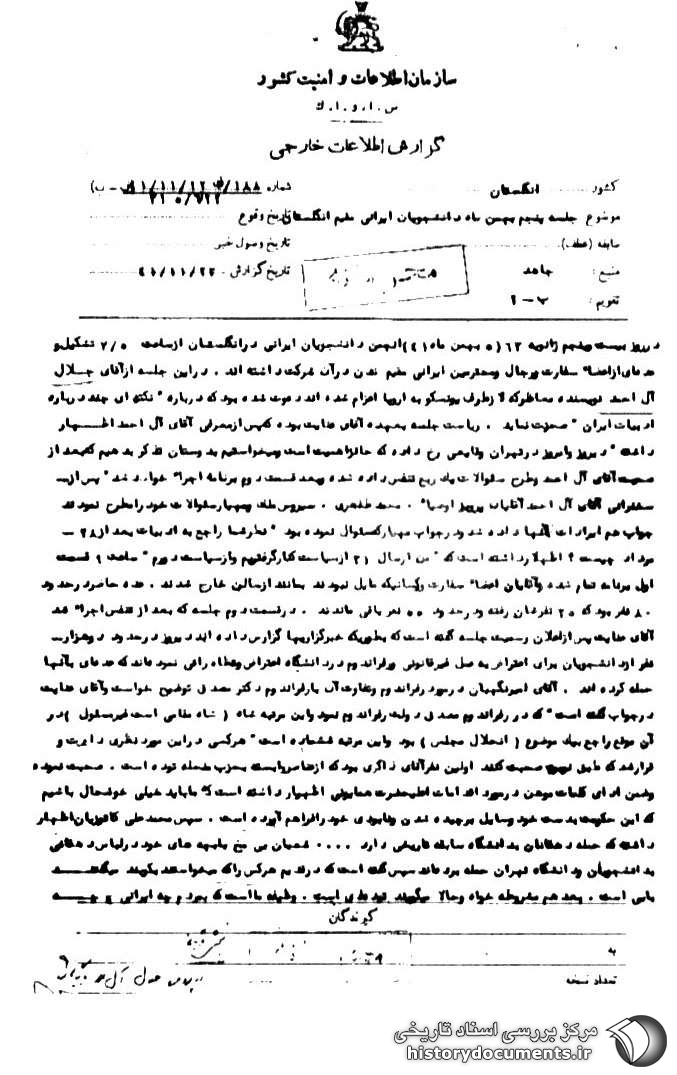 سازمان اطلاعات و امنیت کشور
س . ا . و . ا . ك
گزارش اطلاعات خارجی
کشور انگلستان
شماره
موضوع جلسه پنجم بهمن ماه دانشجویان ایرانی مقیم انگلستان
تاریخ وقوع
سابقه (عطف)
تاریخ وصول خبر
منبع : جاهد
تاریخ گزارش ۴۱/۱۱/۲۲
تقویم : ب - ۲
در روز بیست و پنجم ژانویه ۶۳ (۵ بهمن ماه ۴۱) انجمن دانشجویان ایرانی در انگلستان از ساعت ۷/۵ تشکیل و
عده‌ای از اعضا سفارت و رجال و محترمین ایرانی مقیم لندن در آن شرکت داشته اند . در این جلسه از آقای جلال
آل احمد نویسنده معاصر که از طرف یونسکو به اروپا اعزام شده اند دعوت شده بود که درباره " نکته ای چند درباره
ادبیات ایران " صحبت نماید . ریاست جلسه بعهده آقای عنایت بوده که پس از معرفی آقای آل احمد اظهار
داشته " دیروز و امروز در تهران وقایعی رخ داده که حائز اهمیت است و میخواستیم به دوستان تذکر بدهیم که بعد از
صحبت آقای آل احمد و طرح سئوالات یک ربع تنفس داده شده و بعد قسمت دوم برنامه اجرا خواهد شد " پس از
سخنرانی آقای آل احمد آقایان پرویز اوصیا . محمد ظفحری . سیروس ملک و مهیار سئوالات خود را مطرح نمودند
جواب هم ایرادات آنها داده شد و در جواب مهیار که سئوال نموده بود " نظر شما راجع به ادبیات بعد از ۲۸
مرداد چیست ؟ اظهار داشته است که " من از سال ۳۱ از سیاست کنار گرفتیم و از سیاست دورم " ساعت ۹ قسمت
اول برنامه تمام شده و آقایان اعضا سفارت و کسانیکه مایل نبودند بمانند از سالن خارج شدند . عده حاضر در حدود
۸۰ نفر بود که ۲۵ نفرشان رفته و در حدود ۵۵ نفر باقی ماندند . در قسمت دوم جلسه که بعد از تنفس اجرا شد
آقای عنایت پس از اعلان رسمیت جلسه گفته است که بطوریکه خبرگزاریها گزارش داده اند دیروز در حدود دو هزار
نفر از دانشجویان برای اعتراض به عمل غیرقانونی و رفراندوم در دانشگاه اعتراض و تظاهراتی نموده‌اند که عده‌ای بآنها
حمله کرده اند . آقای امیرنگهبان در مورد رفراندوم و تفاوت آن با رفراندوم دکتر مصدق توضیح خواست و آقای عنایت
در جواب گفته است " که در رفراندوم مصدق دولت رفراندوم نمود و این مرتبه شاه ( شاه مقامی است غیرمسئول ) در
آن موقع راجع بیک موضوع ( انحلال مجلس ) بود و این مرتبه شش ماده است " هرکسی در این مورد نظری دارد و
قرار شد که طبق نوبت صحبت کند اولین نفر آقای ذاکری بود که از عناصر وابسته بحزب منحله توده است . صحبت نموده
و ضمن ادای کلمات موهن در مورد اقدامات اعلیحضرت همایونی اظهار داشته است که " ما باید خیلی خوشحال باشیم
که این حکومت بدست خود وسایل برچیده شدن و نابودی خود را فراهم آورده است . سپس محمدعلی کاتوزیان اظهار
داشته که حمله دهقانان به دانشگاه سابقه تاریخی دارد .... شعبان بی مخ با بچه های خود در لباس دهقانی
به دانشجویان و دانشگاه تهران حمله برده‌اند سپس گفته است که در قدیم هرکس را که میخواستند بکوبند میگفتند
بابی است . بعد هم مشروطه خواه و حالا میگویند توده‌ای است . وظیفه ما است که بمردم چه ایرانی و چه
گیرندگان
به
تعداد نسخه
مرکز بررسی اسناد تاریخی
historydocuments.ir